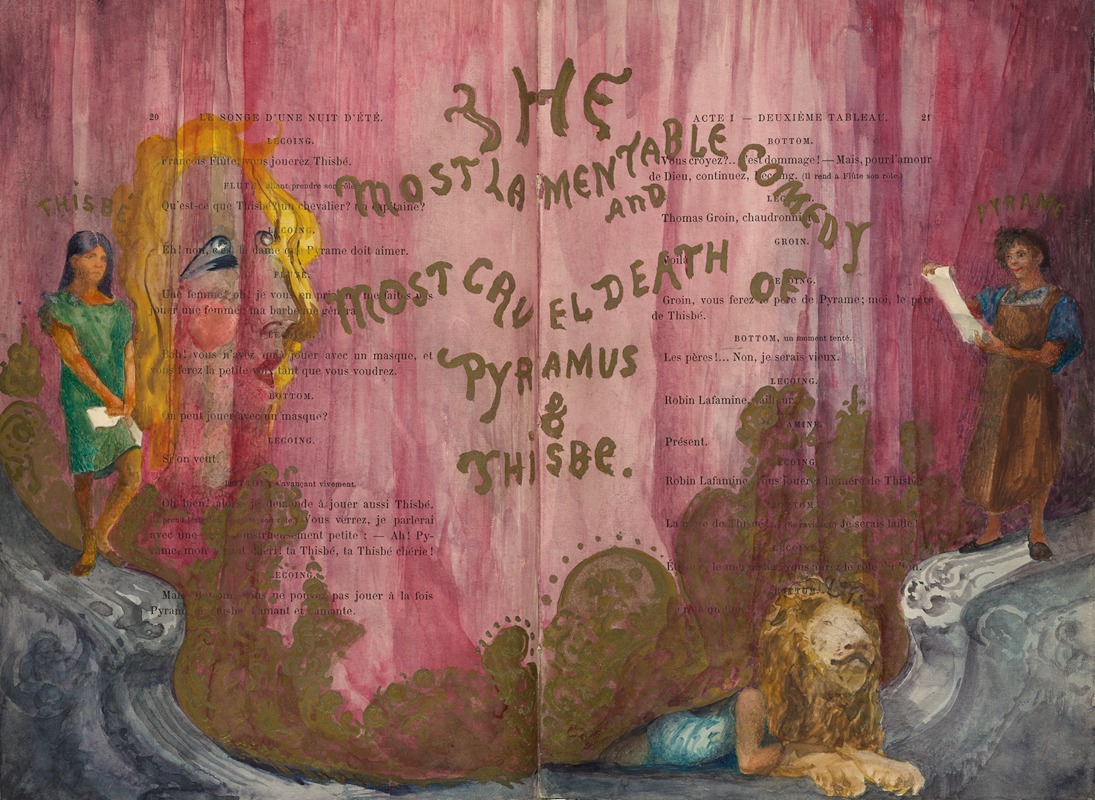 THE
MOST LAMENTABLE COMEDY
AND
MOST CRUEL DEATH OF
PYRAMUS
&
THISBE.
THISBÉ
PYRAME
20 LE SONGE D'UNE NUIT D'ÉTÉ.
LECOING.
François Flûte, vous jouerez Thisbé.
FLUTE, allant prendre son rôle.
Qu'est-ce que Thisbé? un chevalier? un capitaine?
LECOING.
Eh! non, c'est la dame que Pyrame doit aimer.
FLUTE.
Une femme? oh! je vous en prie, ne me faites pas
jouer une femme; ma barbe
LECOING.
Bah! vous n'avez qu'à jouer avec un masque, et
vous ferez la petite voix tant que vous voudrez.
BOTTOM.
On peut jouer avec un masque?
LECOING.
Si on veut.
BOTTOM, s'avançant vivement.
Oh bien! alors, je demande à jouer aussi Thisbé.
Vous verrez, je parlerai
avec une petite : — Ah! Py-
rame, mon chéri! ta Thisbé, ta Thisbé chérie!
LECOING.
Mais non, vous ne pouvez pas jouer à la fois
Pyrame et Thisbé, l'amant et l'amante.
ACTE I — DEUXIÈME TABLEAU. 21
BOTTOM.
Vous croyez?.. c'est dommage! — Mais, pour l'amour
de Dieu, continuez, Lecoing. (Il rend à Flûte son rôle.)
LECOING.
Thomas Groin, chaudronnier.
GROIN.
Voilà.
LECOING.
Groin, vous ferez le père de Pyrame; moi, le père
de Thisbé.
BOTTOM, un moment tenté.
Les pères!... Non, je serais vieux.
LECOING.
Robin Lafamine, tailleur.
LAFAMINE.
Présent.
LECOING.
Robin Lafamine, vous jouerez la mère de Thisbé.
BOTTOM,
La mère de Thisbé? Je serais laide!
LECOING.
vous ferez le rôle du lion.
BOTTOM